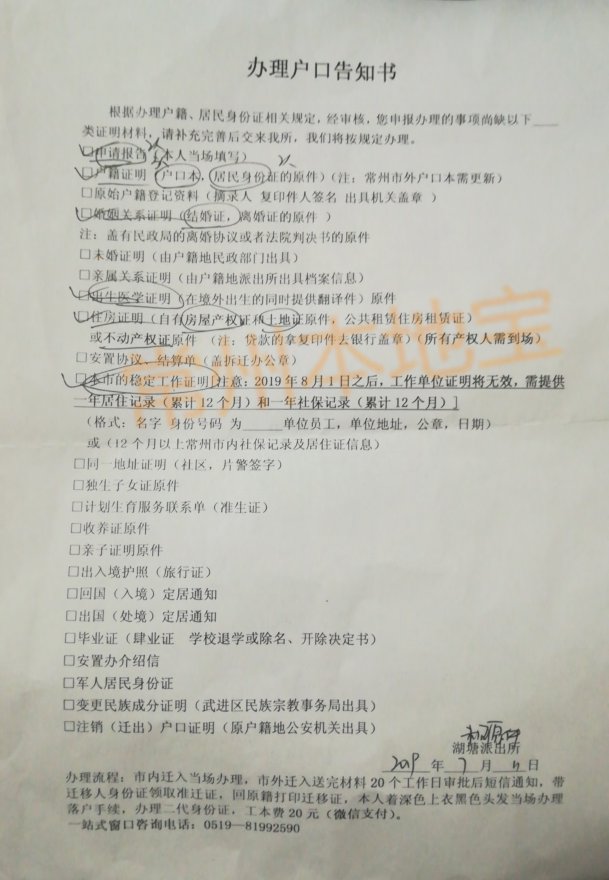 办理户口告知书
根据办理户籍、居民身份证相关规定，经审核，您申报办理的事项尚缺以下____
类证明材料，请补充完善后交来我所，我们将按规定办理。
□申请报告（本人当场填写）
□户籍证明（户口本，居民身份证的原件）（注：常州市外户口本需更新）
□原始户籍登记资料（摘录人 复印件人签名 出具机关盖章）
□婚姻关系证明（结婚证，离婚证的原件）
注：盖有民政局的离婚协议或者法院判决书的原件
□未婚证明（由户籍地民政部门出具）
□亲属关系证明（由户籍地派出所出具档案信息）
□出生医学证明（在境外出生的同时提供翻译件）原件
□住房证明（自有房屋产权证和土地证原件，公共租赁住房租赁证）
或不动产权证原件 （注：贷款的拿复印件去银行盖章）（所有产权人需到场）
□安置协议、结算单（盖拆迁办公章）
□本市的稳定工作证明[注意：2019年8月1日之后，工作单位证明将无效，需提供
一年居住记录（累计12个月）和一年社保记录（累计12个月）]
（格式：名字 身份号码 为____单位员工，单位地址，公章，日期）
或（12个月以上常州市内社保记录及居住证信息）
□同一地址证明（社区，片警签字）
□独生子女证原件
□计划生育服务联系单（准生证）
□收养证原件
□亲子证明原件
□出入境护照（旅行证）
□回国（入境）定居通知
□出国（处境）定居通知
□毕业证（肆业证 学校退学或除名、开除决定书）
□安置办介绍信
□军人居民身份证
□变更民族成分证明（武进区民族宗教事务局出具）
□注销（迁出）户口证明（原户籍地公安机关出具）
湖塘派出所
2019 年 7 月 日
办理流程：市内迁入当场办理，市外迁入送完材料20个工作日审批后短信通知，带
迁移人身份证领取准迁证，回原籍打印迁移证，本人着深色上衣黑色头发当场办理
落户手续，办理二代身份证，工本费20元（微信支付）。
一站式窗口咨询电话：0519—81992590
本地宝